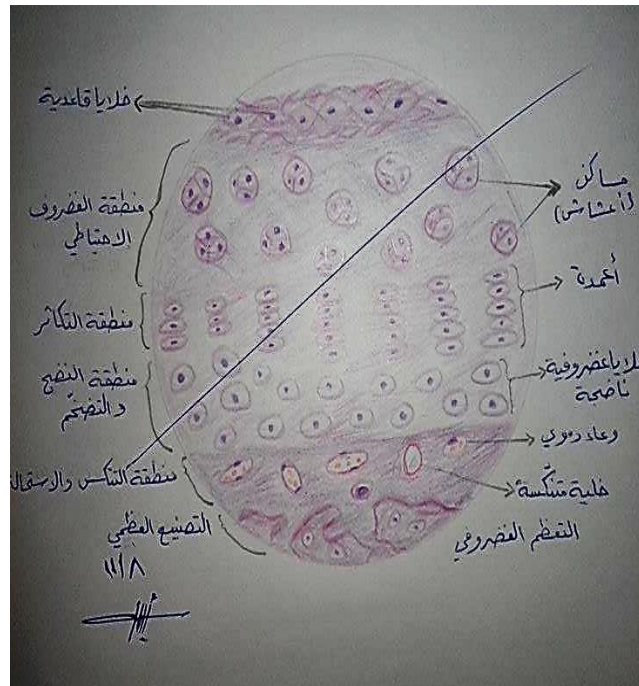 خلايا قاعدية
منطقة الغضروف
الاحتياطي
منطقة التكاثر
منطقة النضج
والتضخم
منطقة التنكس والاستمالة
التصنيع العظمي
١١/٨
مساكن
(أعشاش)
أعمدة
خلايا غضروفية
ناضجة
وعاء دموي
خلية متنكسة
التعظم الغضروفي